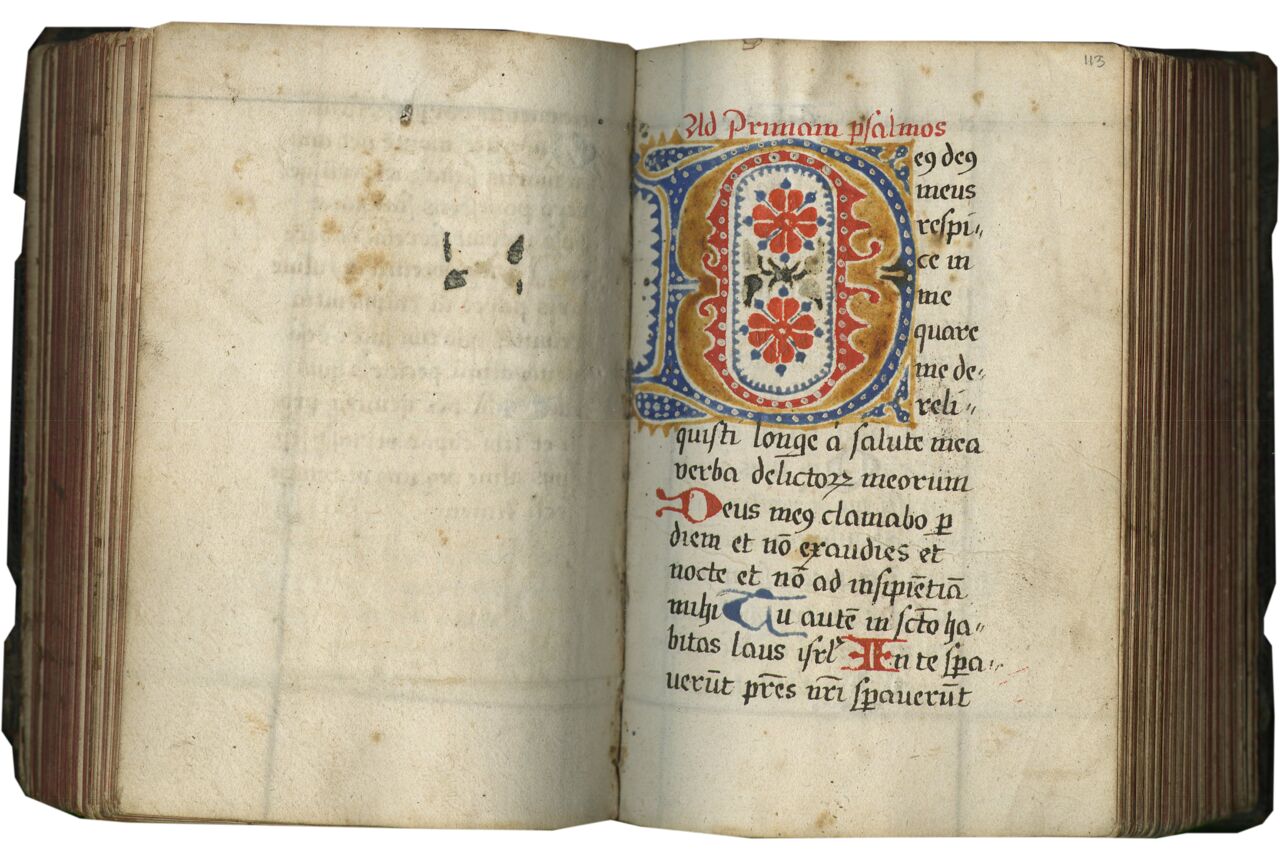 113
Ad Primam psalmos
Deꝰ deꝰ
meus
respi〃
ce in
me
quare
me de〃
reli〃
quisti longe á salute mea
verba delictoꝝ meorum
Deus meꝰ clamabo ꝑ
diem et nō exaudies et
nocte et nō ad insipiētiā
mihi Tu autē in sc̄to ha〃
bitas laus isrl̕ In te sꝑa〃
uerūt pr̄es nr̄i sꝑauerūt